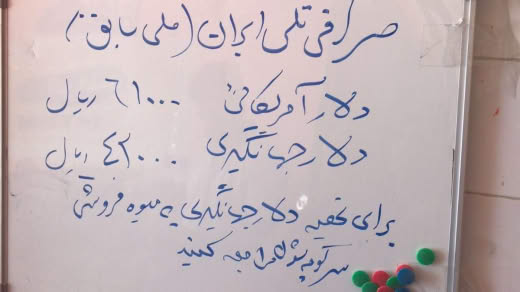 صرافی تلی ایران (ملی سابق)
دلار آمریکائی ۶۱۰۰۰ ریال
دلار جهانگیری ۴۲۰۰۰ ریال
برای تهیه دلار جهانگیری به میوه فروشی
سر کوچه مراجعه کنید